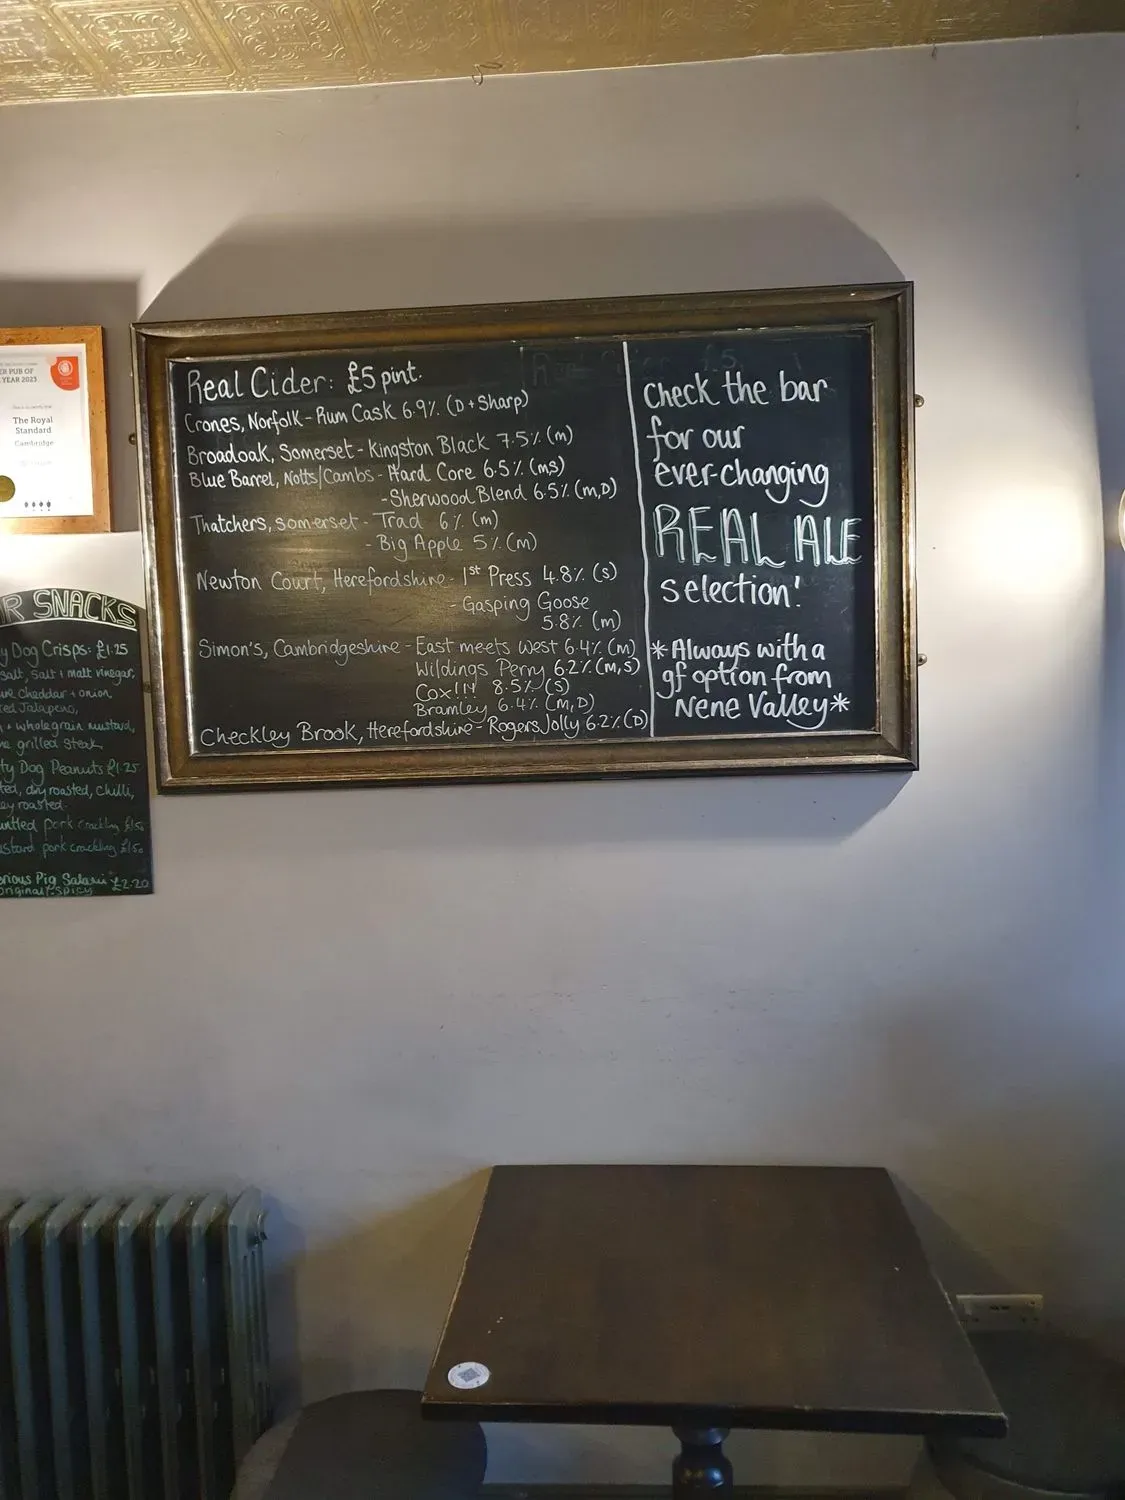 ER PUB OF
YEAR 2023
The Royal
Standard
Cambridge
R SNACKS
y Dog Crisps: £1.25
salt, salt + malt vinegar,
cheddar + onion,
Jalapeno,
+ wholegrain mustard,
grilled steak
ty Dog Peanuts £1.25
ted, dry roasted, chilli,
ey roasted.
pork crackling £1.50
stard pork crackling £1.50
erious Pig Salami £2.20
original, spicy
Real Cider: £5 pint.
Crones, Norfolk - Rum Cask 6.9% (D + Sharp)
Broadoak, Somerset - Kingston Black 7.5% (m)
Blue Barrel, Notts/Cambs - Hard Core 6.5% (ms)
- Sherwood Blend 6.5% (m,D)
Thatchers, somerset - Trad 6% (m)
- Big Apple 5% (m)
Newton Court, Herefordshire - 1st Press 4.8% (s)
- Gasping Goose
5.8% (m)
Simon's, Cambridgeshire - East meets West 6.4% (m)
Wildings Perry 6.2% (m,s)
Cox!N 8.5% (s)
Bramley 6.4% (m,D)
Checkley Brook, Herefordshire - Rogers Jolly 6.2% (D)
Check the bar
for our
ever-changing
REAL ALE
selection!
*Always with a
gf option from
Nene Valley*